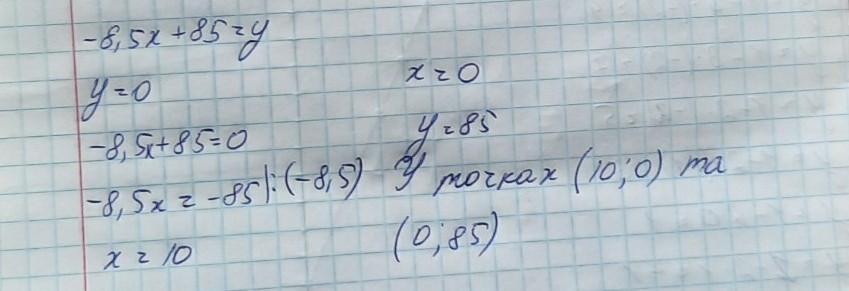 -8,5x+85=y
y=0
-8,5x+85=0
-8,5x=-85|:(-8,5)
x=10
x=0
y=85
У точках (10;0) та
(0;85)